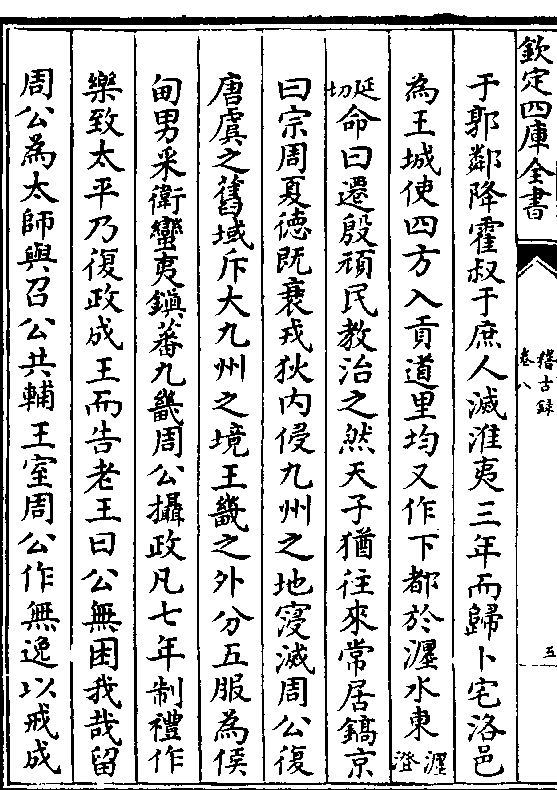 欽定四庫全書
稽古録
卷八
五
于郭鄰降霍叔于庶人滅淮夷三年而歸卜宅洛邑
為王城使四方入貢道里均又作下都於瀍水東瀍澄
延切命曰遷殷頑民教治之然天子猶往來常居鎬京
曰宗周夏徳既衰戎狄内侵九州之地寖滅周公復
唐虞之舊域斥大九州之境王畿之外分五服為侯
甸男采衛蠻夷鎮蕃九畿周公攝政凡七年制禮作
樂致太平乃復政成王而告老王曰公無困我哉留
周公為太師與召公共輔王室周公作無逸以戒成